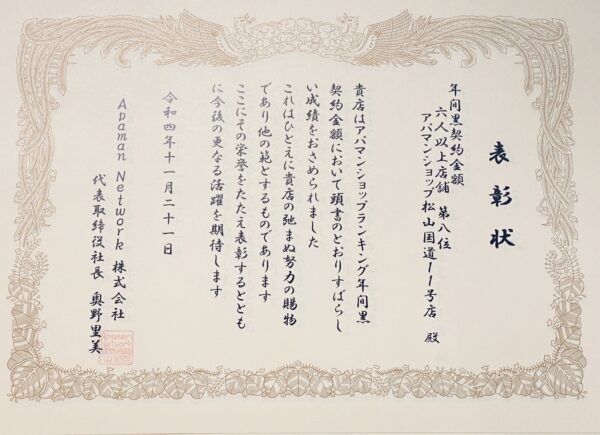 表彰状
年间黒契約金額
六人以上店舗 第八位
アパマンショップ松山国道11号店 殿
貴店はアパマンショップランキング年间黒
契約金額において頭書のとおりすばらし
い成績をおさめられました
これはひとえに貴店の弛まぬ努力の賜物
であり他の範とするものであります
ここにその栄誉をたたえ表彰するととも
に今後の更なる活躍を期待します
令和四年十一月二十一日
Apaman Network 株式会社
代表取締役社長 奥野里美
Apaman
Network